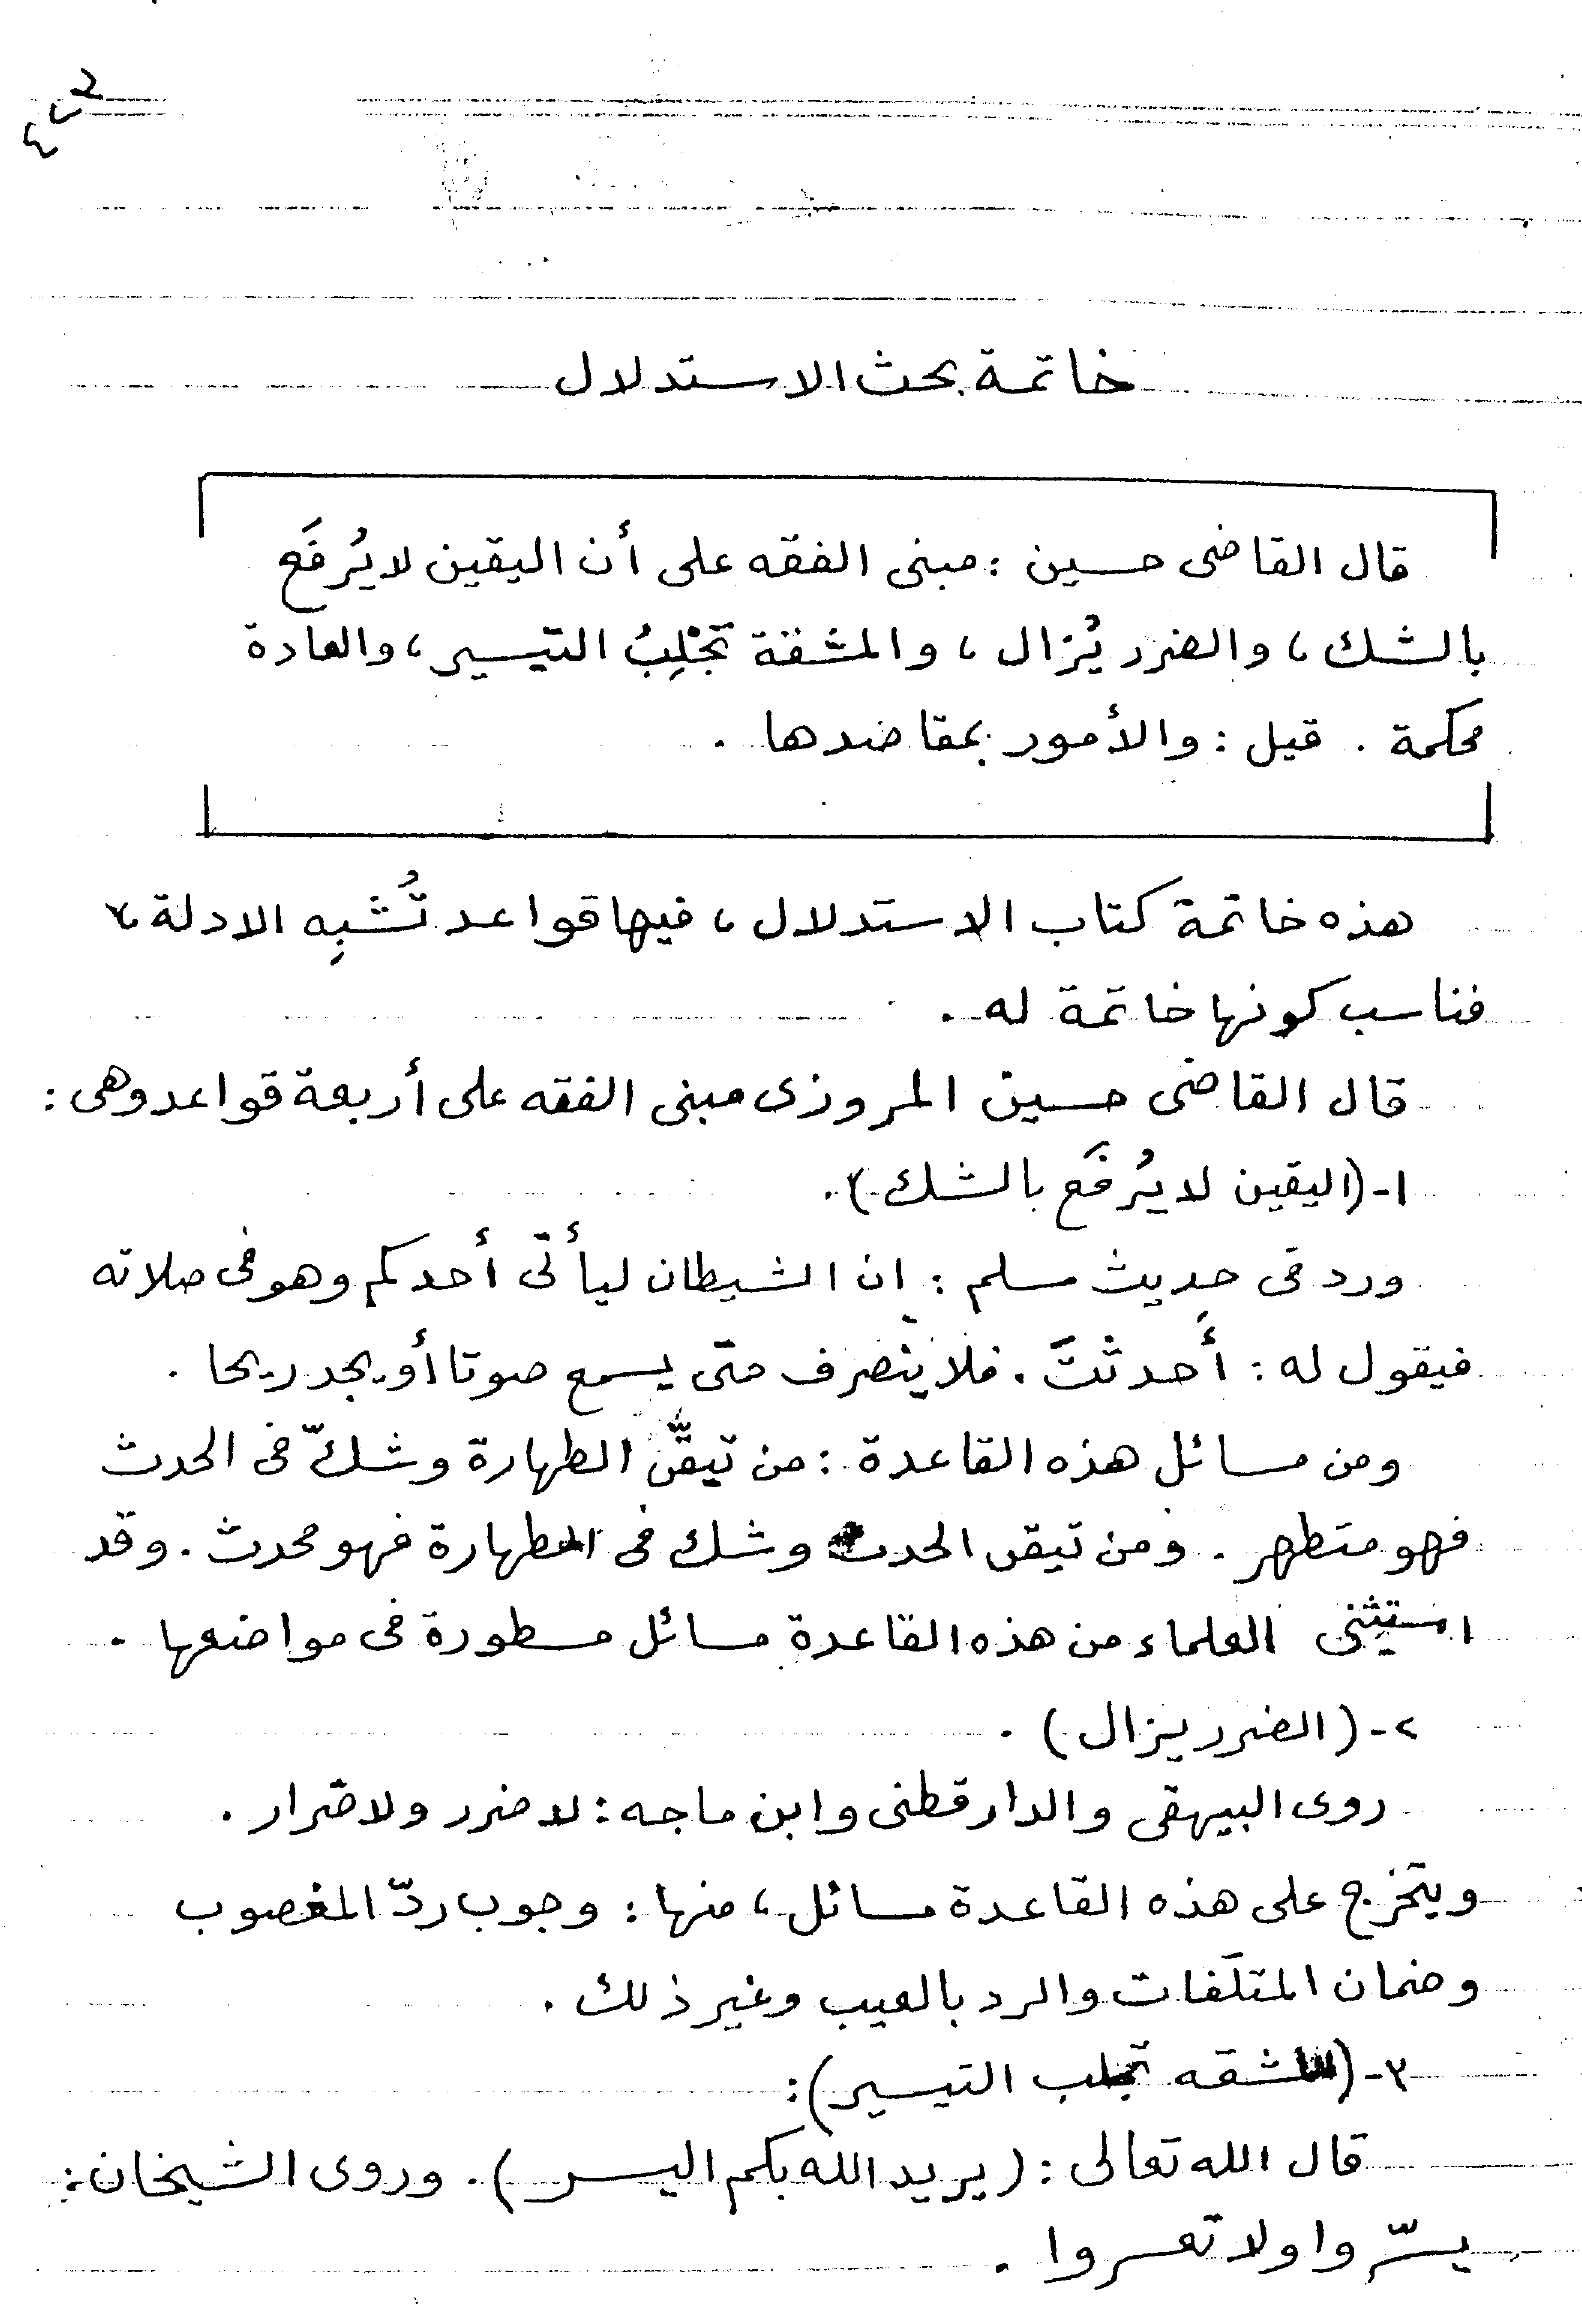 خاتمة بحث الاستدلال
قال القاضى حسين : مبنى الفقه على أن اليقين لا يُرفَع
بالشك ، والضرر يُزال ، والمشقة تجْلِبُ التيسير ، والعادة
محكمة . قيل : والأمور بمقاصدها .
هذه خاتمة كتاب الاستدلال ، فيها قواعد تُشبِه الادلة ،
فناسب كونها خاتمة له .
قال القاضى حسين المروزى مبنى الفقه على أربعة قواعد وهى :
١- (اليقين لا يُرفَع بالشك) .
ورد فى حديث مسلم : ان الشيطان ليأتى أحدكم وهو فى صلاته
فيقول له : أَحدثتَ . فلا ينصرف حتى يسمع صوتا أو يجد ريحا .
ومن مسائل هذه القاعدة : من تيقّن الطهارة وشكّ فى الحدث
فهو متطهر . ومن تيقن الحدث وشك فى الطهارة فهو محدث . وقد
استثنى العلماء من هذه القاعدة مسائل مسطورة فى مواضعها .
٢- (الضرر يزال) .
روى البيهقى والدارقطنى وابن ماجه : لا ضرر ولا ضرار .
ويتخرج على هذه القاعدة مسائل ، منها : وجوب ردّ المغصوب
وضمان المتلَفات والرد بالعيب وغير ذلك .
٣- (المشقه تجلب التيسير) :
قال الله تعالى : (يريد الله بكم اليسر) . وروى الشيخان :
يسّروا ولا تعسروا .